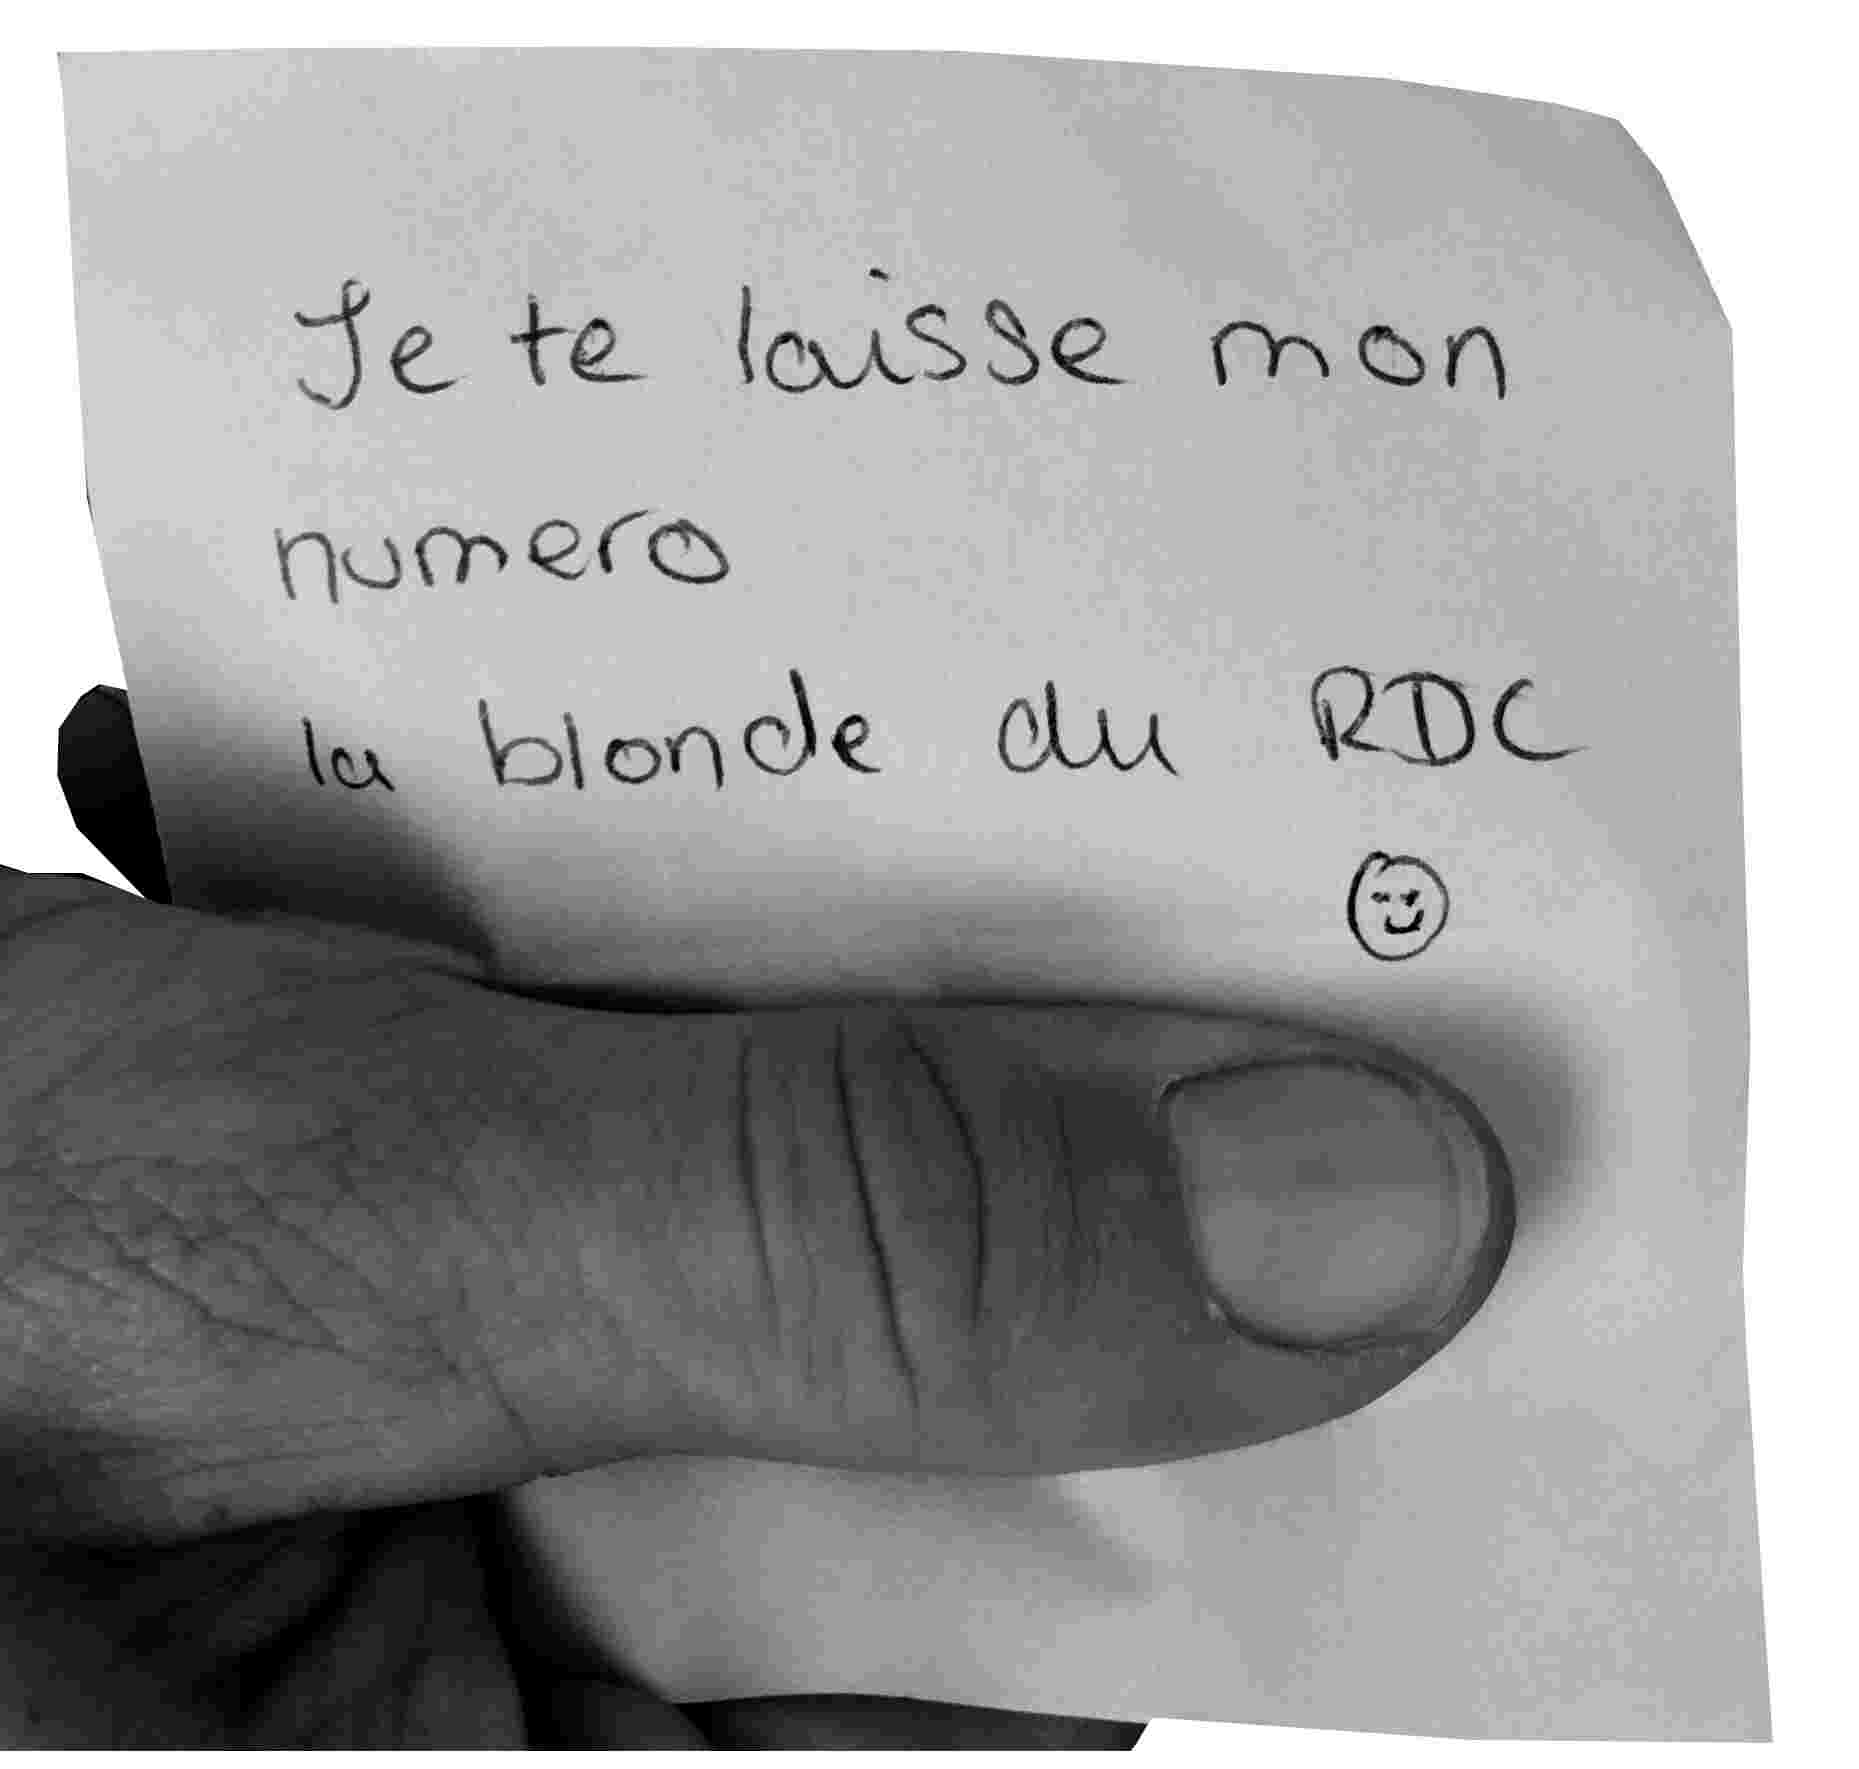 Je te laisse mon
numero
la blonde du RDC